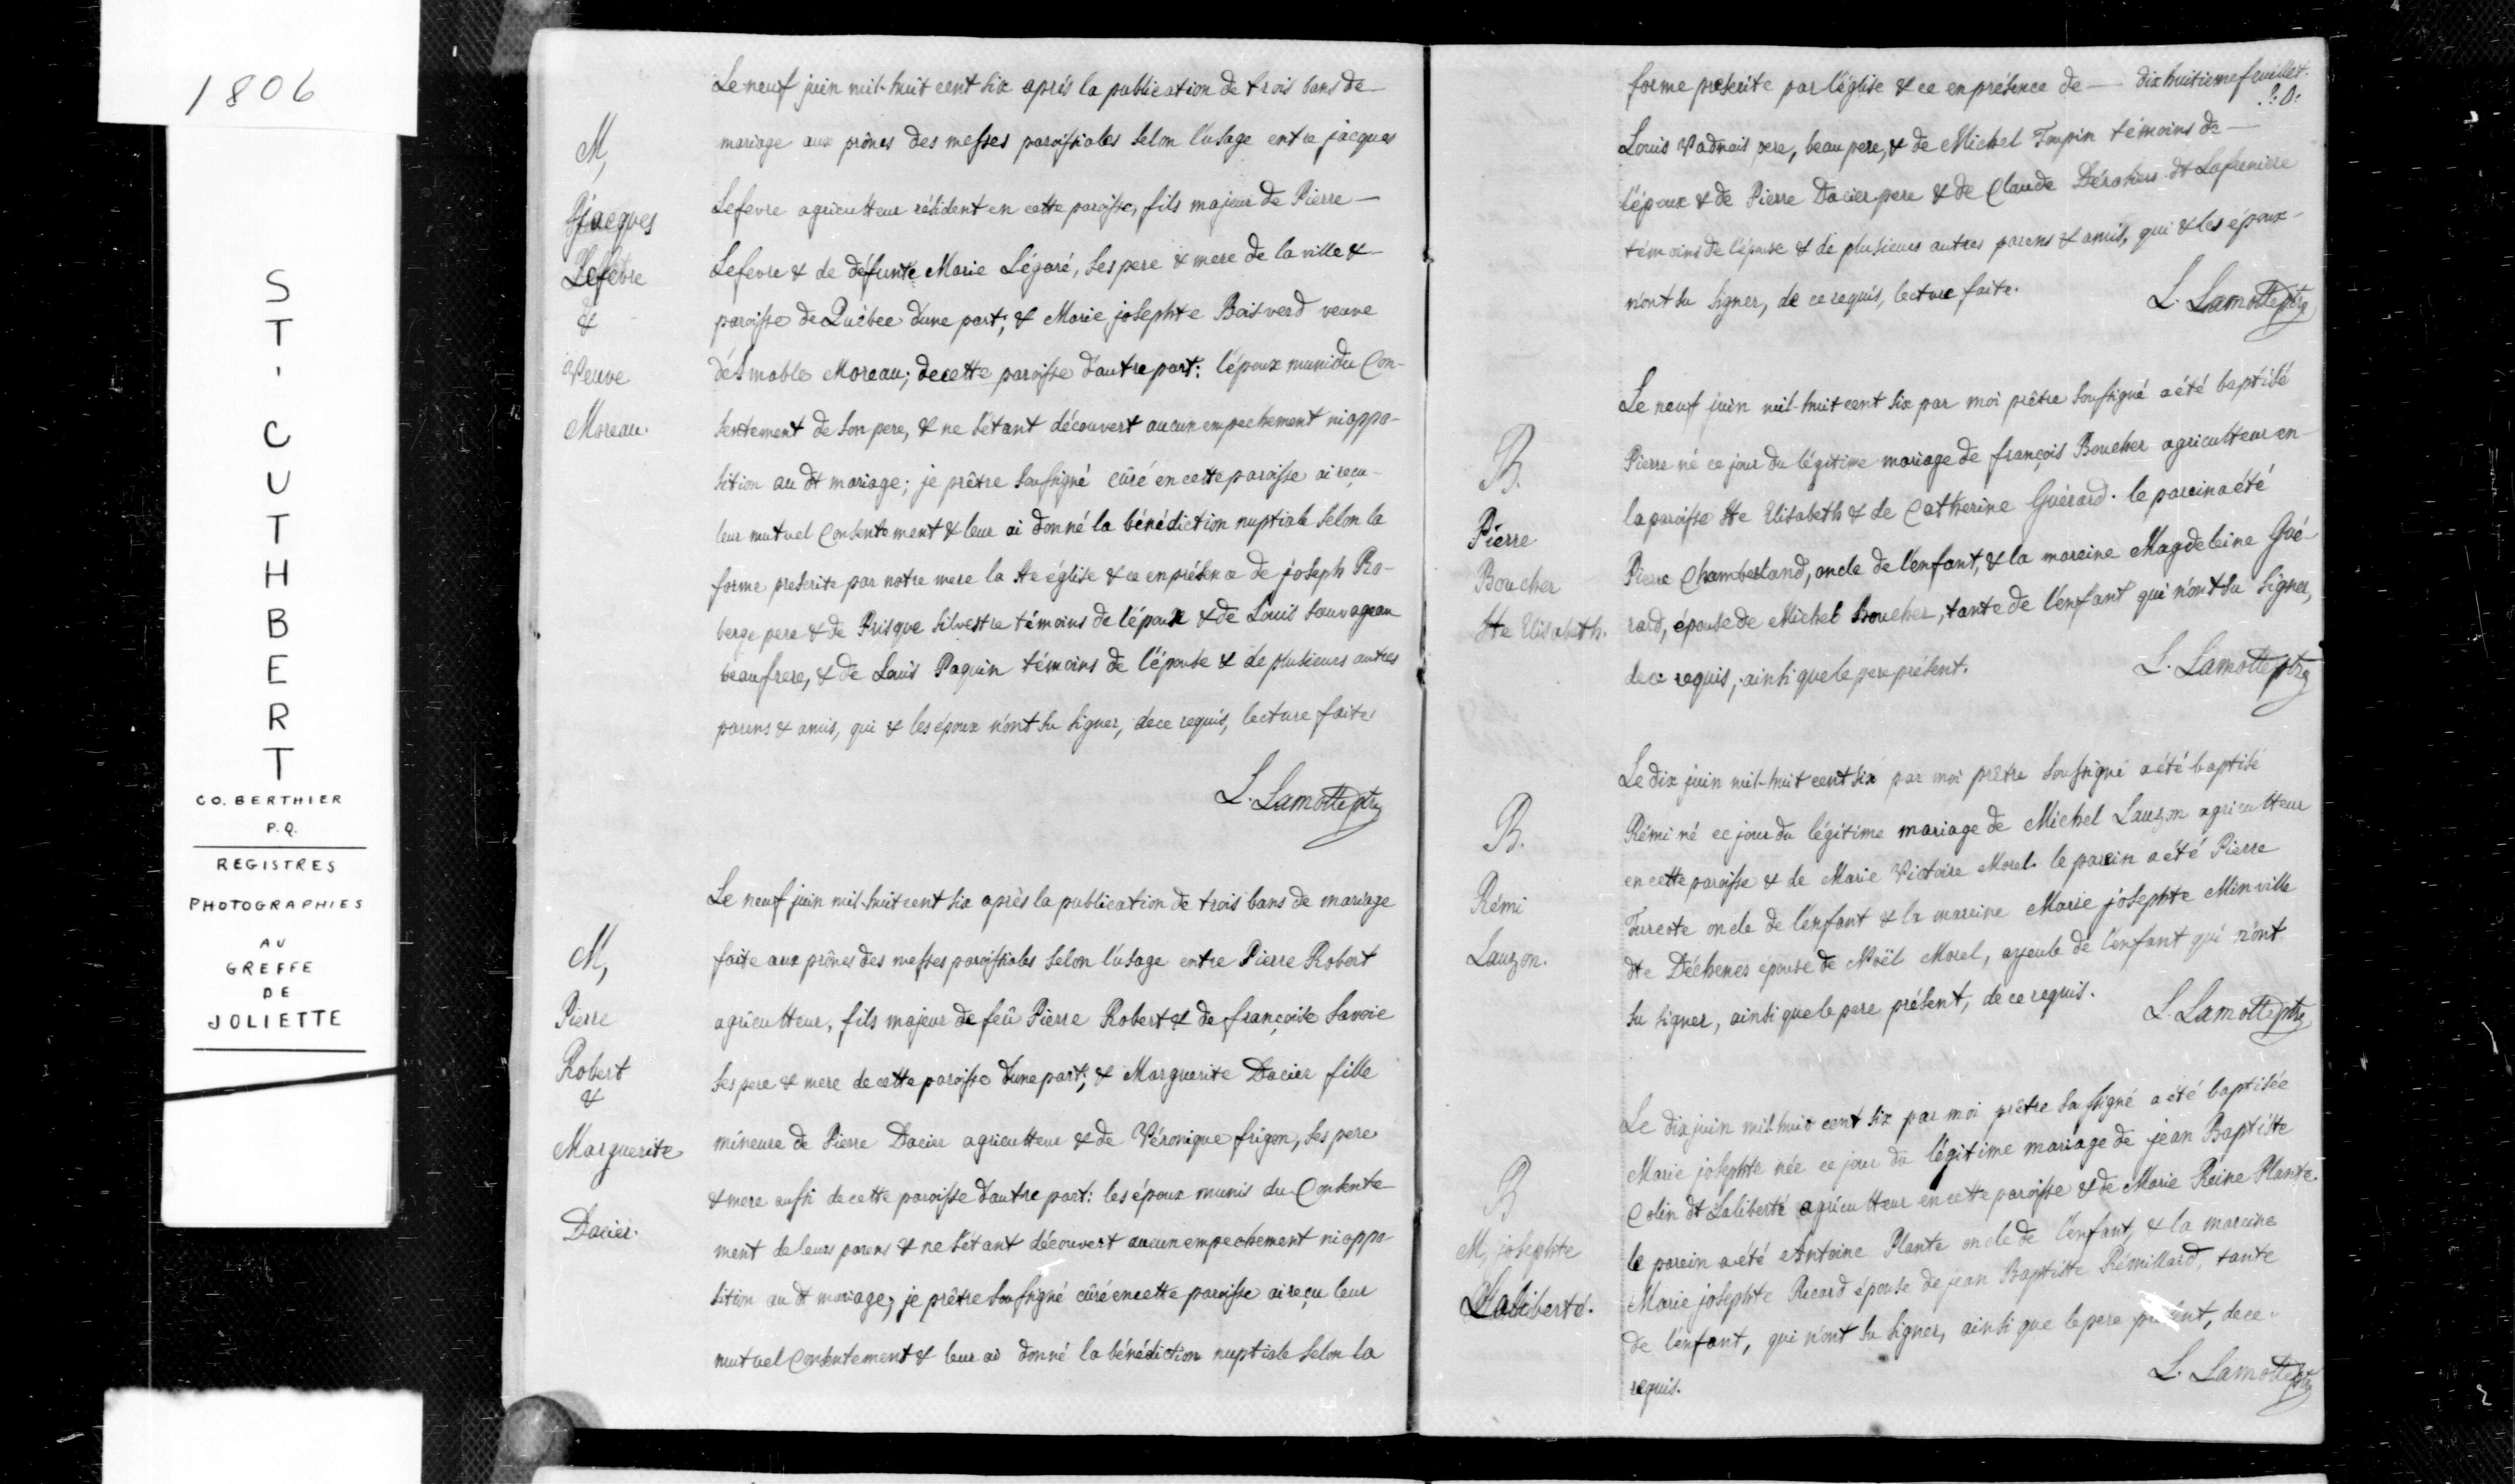 1806
ST. CUTHBERT
CO. BERTHIER
P.Q.
REGISTRES
PHOTOGRAPHIES
AU
GREFFE
DE
JOLIETTE
M,
Jacques
Lefevre
&
Veuve
Moreau.
Le neuf juin mil-huit cent six après la publication de trois bans de
mariage aux prônes des messes paroissiales selon l'usage entre jacques
Lefevre agriculteur résident en cette paroisse, fils majeur de Pierre
Lefevre & de défunte Marie Légaré, ses pere & mere de la ville &
paroisse de Québec d'une part; & Marie josephte Boisverd veuve
d'Amable Moreau; de cette paroisse d'autre part: l'époux muni du Con-
sentement de son pere, & ne s'étant découvert aucun empechement ni oppo-
sition au dt mariage; je prêtre soussigné cûré en cette paroisse ai reçu
leur mutuel Consentement & leur ai donné la bénédiction nuptiale selon la
forme prescrite par notre mere la Ste église & ce en présence de joseph Ro-
berge pere & de Prisque silvestre témoins de l'époux & de Louis Sauvageau
beaufrere, & de Louis Paquin témoins de l'épouse & de plusieurs autres
parens & amis, qui & les époux n'ont su signer, de ce requis, lecture faite.
L. Lamotte ptre
M,
Pierre
Robert
&
Marguerite
Dacier.
Le neuf juin mil-huit cent six après la publication de trois bans de mariage
faite aux prônes des messes paroissiales selon l'usage entre Pierre Robert
agriculteur, fils majeur de feû Pierre Robert & de françoise Savoie
ses pere & mere de cette paroisse d'une part; & Marguerite Dacier fille
mineure de Pierre Dacier agriculteur & de Véronique frigon, ses pere
& mere aussi de cette paroisse d'autre part: les époux munis du Consente
ment de leurs parens & ne s'étant découvert aucun empechement ni oppo-
sition au dt mariage; je prêtre soussigné cûré en cette paroisse ai reçu leur
mutuel Consentement & leur ai donné la bénédiction nuptiale selon la
dixhuitieme feuillet.
forme prescrite par l'église & ce en présence de
Louis Vadnais pere, beau pere, & de Michel Toupin témoins de
l'époux & de Pierre Dacier pere & de Claude Dérosiers dt Lafreniere
témoins de l'épouse & de plusieurs autres parens & amis, qui & les époux
n'ont su signer, de ce requis, lecture faite.
L. Lamotte ptre
B.
Pierre
Boucher
Ste Elisabeth.
Le neuf juin mil-huit cent six par moi prêtre soussigné a été baptisé
Pierre né ce jour du légitime mariage de françois Boucher agriculteur en
la paroisse Ste Elisabeth & de Catherine Guérard. le parein a été
Pierre Chamberland, oncle de l'enfant, & la mareine Magdeleine Gué-
rard, épouse de Michel Boucher, tante de l'enfant qui n'ont su signer,
de ce requis, ainsi que le pere présent.
L. Lamotte ptre
B.
Rémi
Lauzon.
Le dix juin mil-huit cent six par moi prêtre soussigné a été baptisé
Rémi né ce jour du légitime mariage de Michel Lauzon agriculteur
en cette paroisse & de Marie Victoire Morel. le parein a été Pierre
Turcote oncle de l'enfant & la mareine Marie josephte Minville
dte Déchenes épouse de Noël Morel, ayeule de l'enfant qui n'ont
su signer, ainsi que le pere présent, de ce requis.
L. Lamotte ptre
B
M, josephte
Laliberté.
Le dix juin mil-huit cent six par moi prêtre soussigné a été baptisée
Marie josephte née ce jour du légitime mariage de jean Baptiste
Colin dt Laliberté agriculteur en cette paroisse & de Marie Reine Plante.
le parein a été Antoine Plante oncle de l'enfant, & la mareine
Marie josephte Ricard épouse de jean Baptiste Rémillard, tante
de l'enfant, qui n'ont su signer, ainsi que le pere présent, de ce
requis.
L. Lamotte ptre